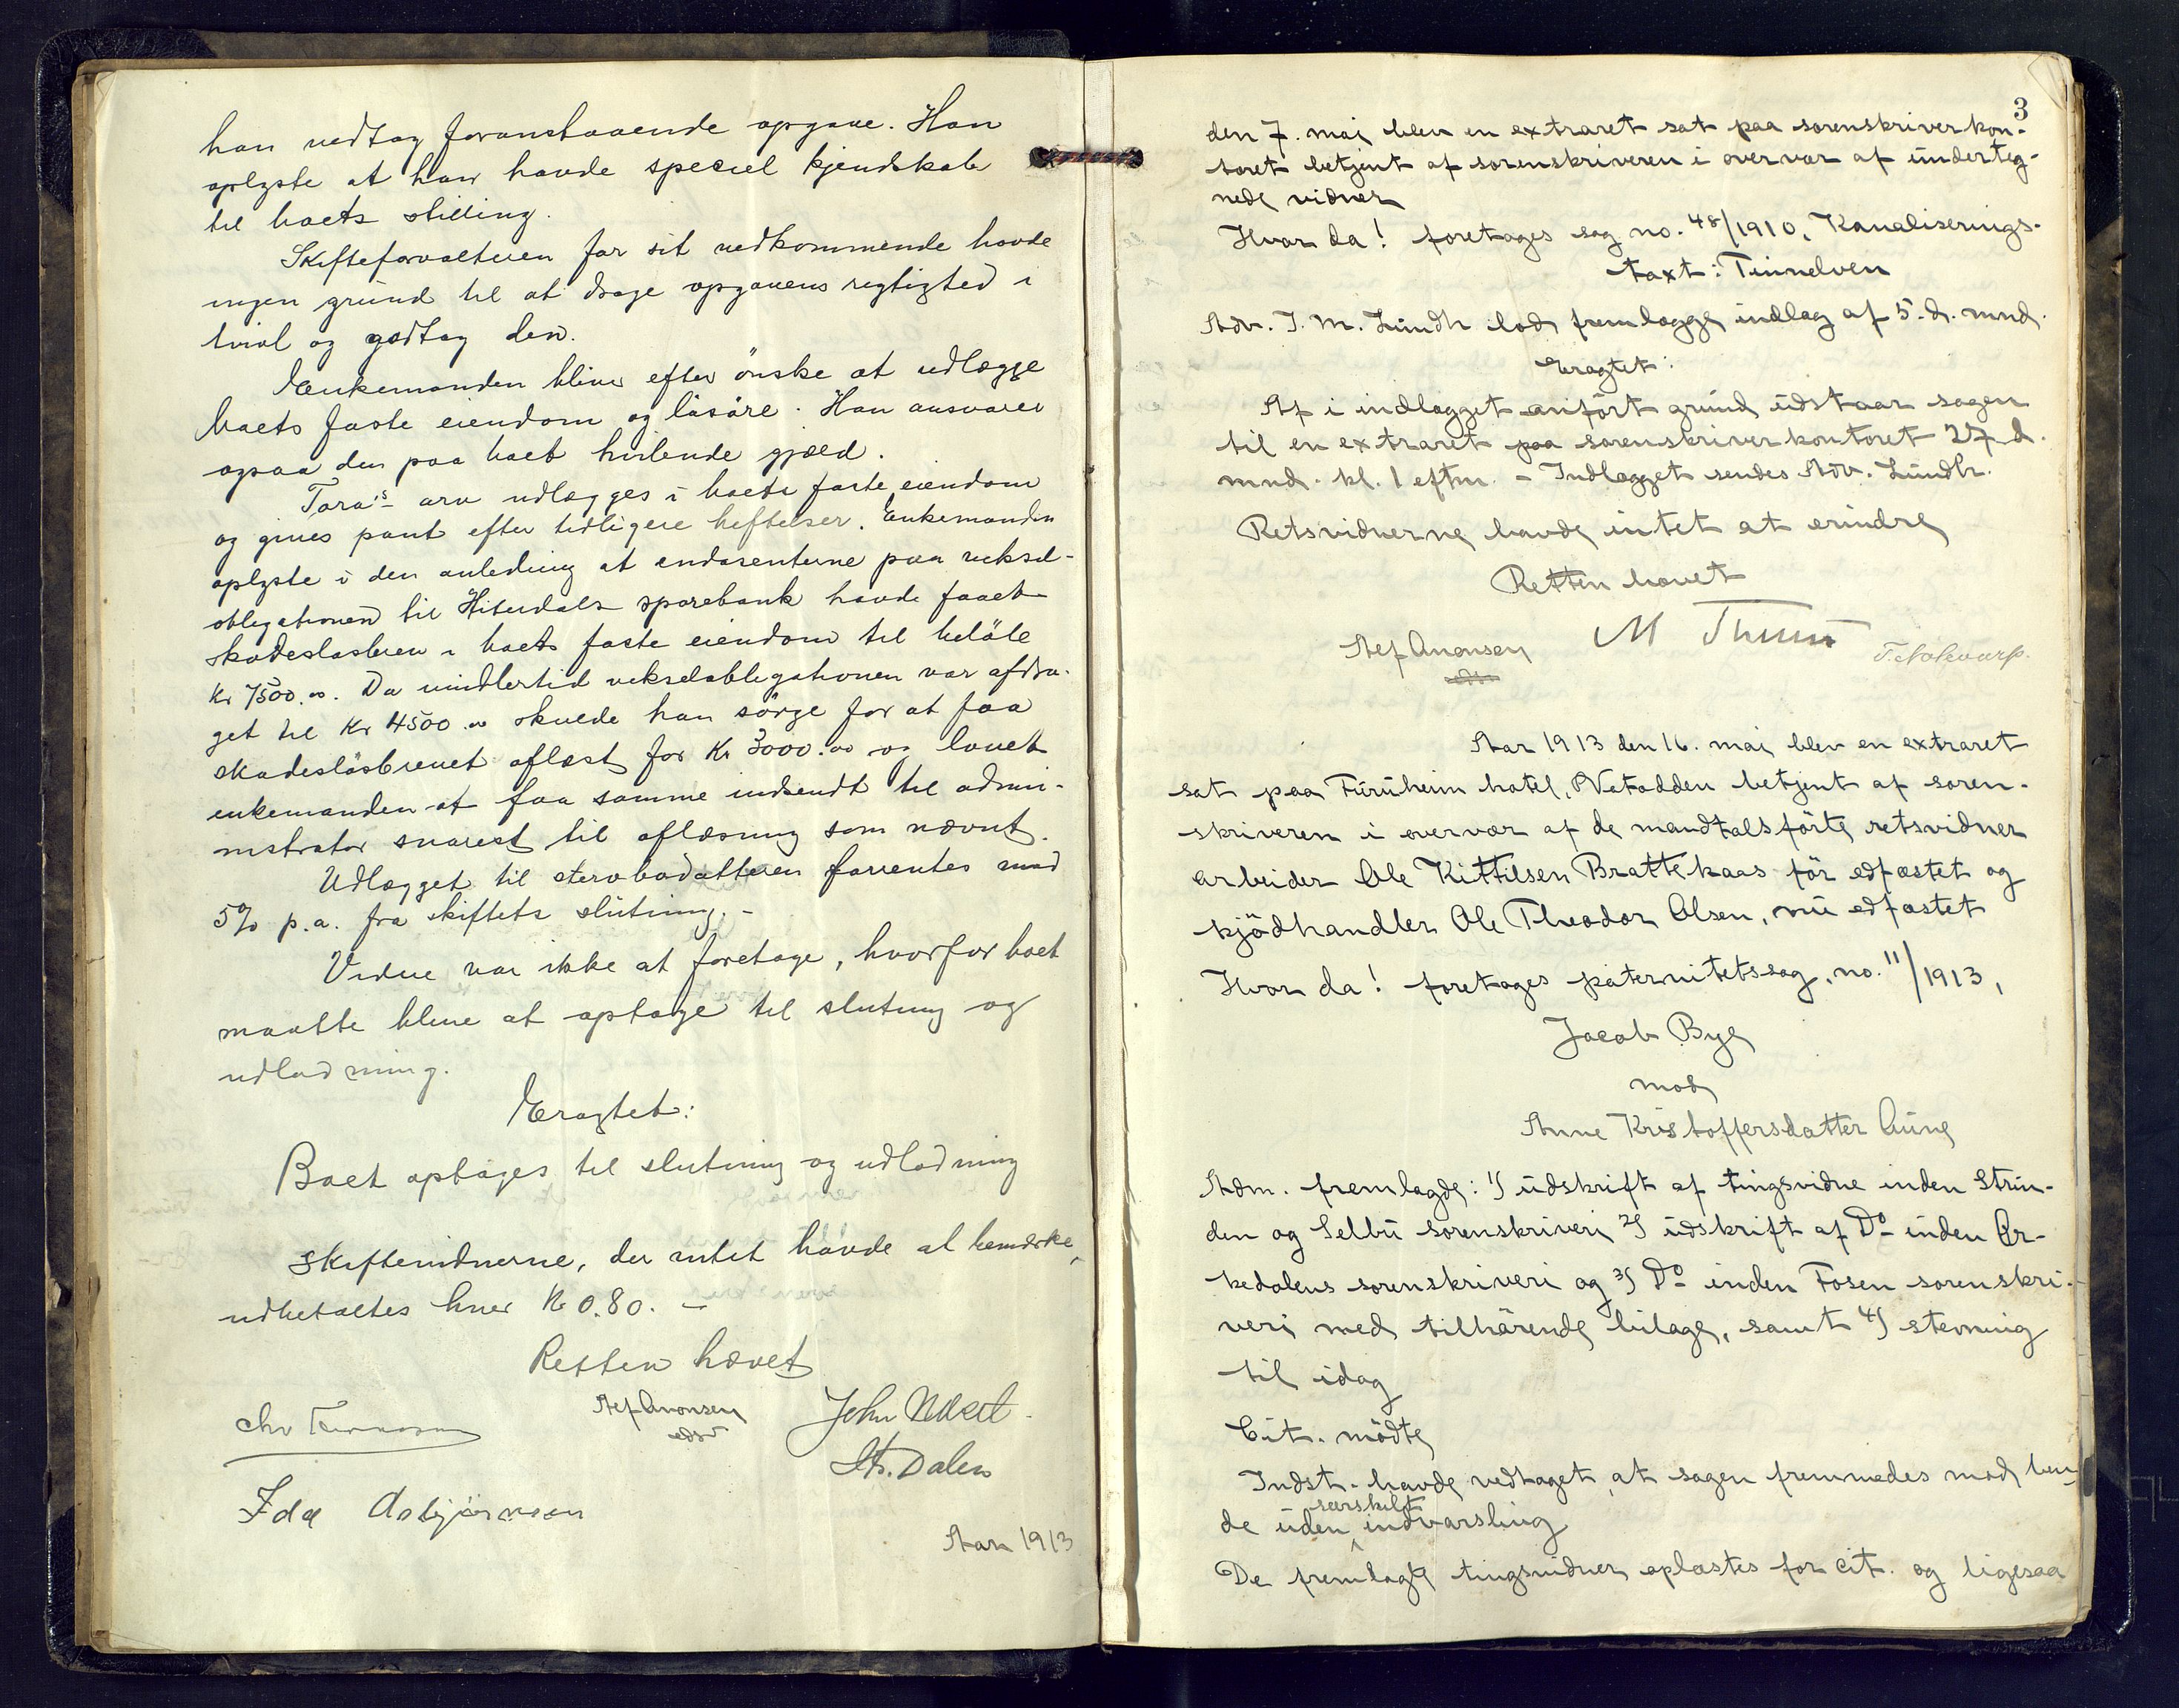 han vedtog foranstaaende opgave. Han
oplyste at han havde speciel kjendskab
til boets stilling.
Skifteforvalteren for sit vedkommende havde
ingen grund til at drage opgavens rigtighed i
tvivl og godtog den.
Enkemanden bliver efter önske at udlægge
boets faste eiendom og lösöre. Han ansvarer
ogsaa den paa boet hvilende gjæld.
Tora's arv udlægges i boets faste eiendom
og gives pant efter tidligere heftelser. Enkemanden
oplyste i den anledning at endosenterne paa veksel-
obligationen til Hiterdals sparebank havde faaet
skadeslösbrev i boets faste eiendom til belöb
kr 7500.00. Da imidlertid vekselobligationen var afdra-
get til kr 4500.00 skulde han sörge for at faa
skadeslösbrevet aflæst for kr 3000.00 og lovet
enkemanden at faa samme indsendt til admi-
nistrator snarest til aflæsning som nævnt.
Udlægget til stervbodatteren forrentes med
5% p.a. fra skiftets slutning. -
Videre var ikke at foretage, hvorfor boet
maatte blive at optage til slutning og
udlodning.
Eragtet:
Boet optages til slutning og udlodning
Skiftevidnerne, der intet havde at bemærke,
udbetaltes hver kr 0.80. -
Retten hævet
Alf Anonsen
John
St. Dalen
Ida Asbjörnsen
Aar 1913
3
den 7. mai blev en extraret sat paa sorenskriverkon-
toret betjent af sorenskriveren i overvær af underteg-
nede vidner
Hvor da! foretages sag no. 48/1910, Kanaliserings-
taxt: Tinnelven
Adv. J. M. Lundh lod fremlægge indlæg af 5. d. mnd.
Eragtet:
Af i indlægget anfört grund udstaar sagen
til en extraret paa sorenskriverkontoret 27 d.
mnd. kl. 1 eftm. - Indlægget sendes Adv. Lundh.
Retsvidnerne havde intet at erindre
Retten hævet
Alf Anonsen
M
Aar 1913 den 16. mai blev en extraret
sat paa Furuheim hotel, Notodden betjent af soren-
skriveren i overvær af de mandtalsförte retsvidner
arbeider Ole Kittilsen Brattekaas för edfæstet og
kjödhandler Ole Theodor Olsen, nu edfæstet
Hvor da! foretages paternitetssag, no. 11/1913,
Jacob Bye
mod
Anne Kristoffersdatter Aune
Adm. fremlagde: 1) udskrift af tingsvidne inden Strin-
den og Selbu sorenskriveri 2) udskrift af Do inden Or-
kedalens sorenskriveri og 3) Do inden Fosen sorenskri-
veri med tilhörende bilage, samt 4) stevning
til idag
Cit. mödte
Indst. havde vedtaget, at sagen fremmedes mod hen-
de uden særskilt indvarsling
De fremlagte tingsvidner oplæstes for cit. og ligesaa